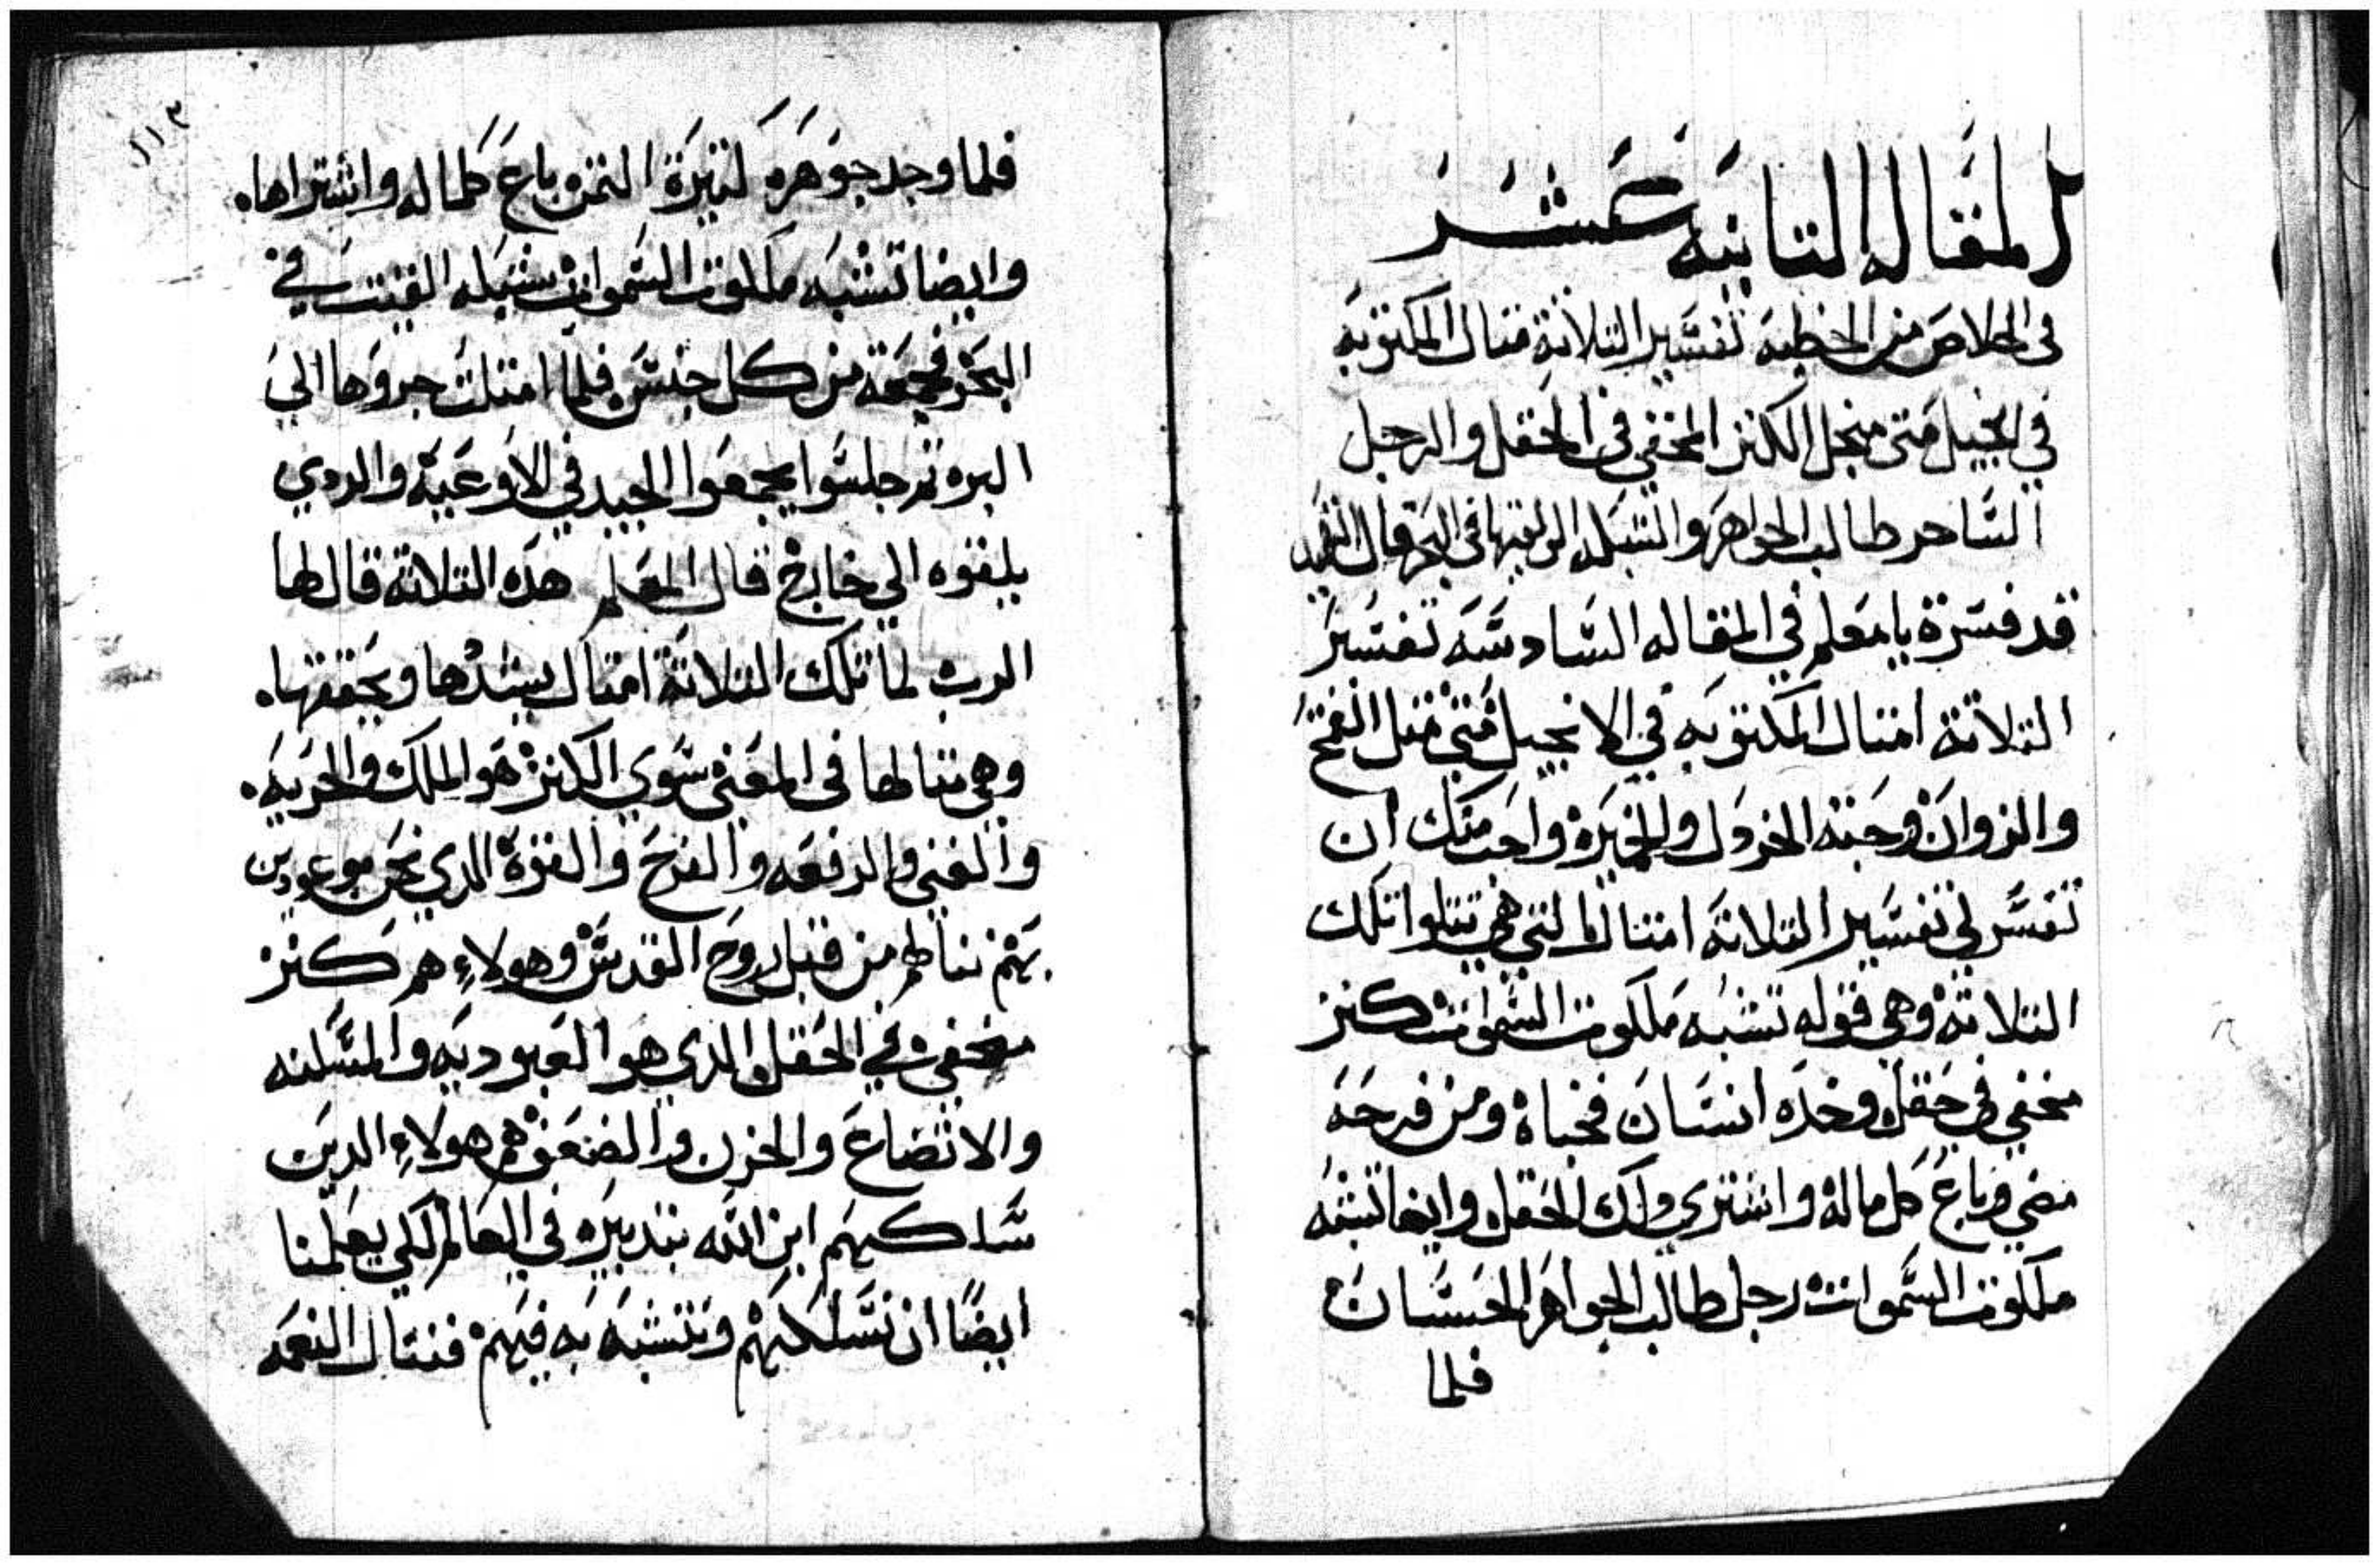 المقاله التانيه عشر
في الخلاص من الخطيه تفسير التلاتة متال المكتوبه
في انجيل متي منجل الكنز المخفي في الحقل والرجل
التاجر طالب الجواهر والشبكه الي لقيها في البحر قال التلميد
قد فسرة يا معلم في المقاله السادسه تفسير
التلاتة امتال المكتوبه في الانجيل متي متل القمح
والزوان وحبته الخردل والخميره واجب منك ان
تفسر لي تفسير التلاتة امتال التي هي تتلوا تلك
التلاتة وهي قوله تشبه ملكوت السموات كنز
مخفي في حقل وخده انسان فخباه ومن فرحه
مضي وباع كل ماله واشتري داك الحقل وايضا تشبه
ملكوت السموات رجل طالب الجواهر الحسان
فلما
فلما وجد جوهره كتيرة التمن باع كلما له واشتراها
وايضا تشبه ملكوت السموات شبكه القيت في
البحر فجمعة من كل جنس فلما امتلت جروها الي
البر ثم جلسوا يجمعوا الجيد في الاوعية والردي
يلقوه الي خارج قال المعلم هده التلاتة قالها
الرب لما تلك التلاتة امتال يشدها ويحققها
وهي متالها في المعني سوي الكنز هو الملك والحريه
والغني والرفعه والفرح والقوة الدي نحن موعودين
بهم ننالهم من قبل روح القدس وهولاء هم كنز
مخفي في الحقل الدي هو العبوديه والمسكنه
والاتضاع والحزن والضعف هم هولاء الدين
ساكهم ابن الله بتدبيره في العالم لكي يعلمنا
ايضا ان نسلكهم ونتشبه به فيهم فننال النعمه